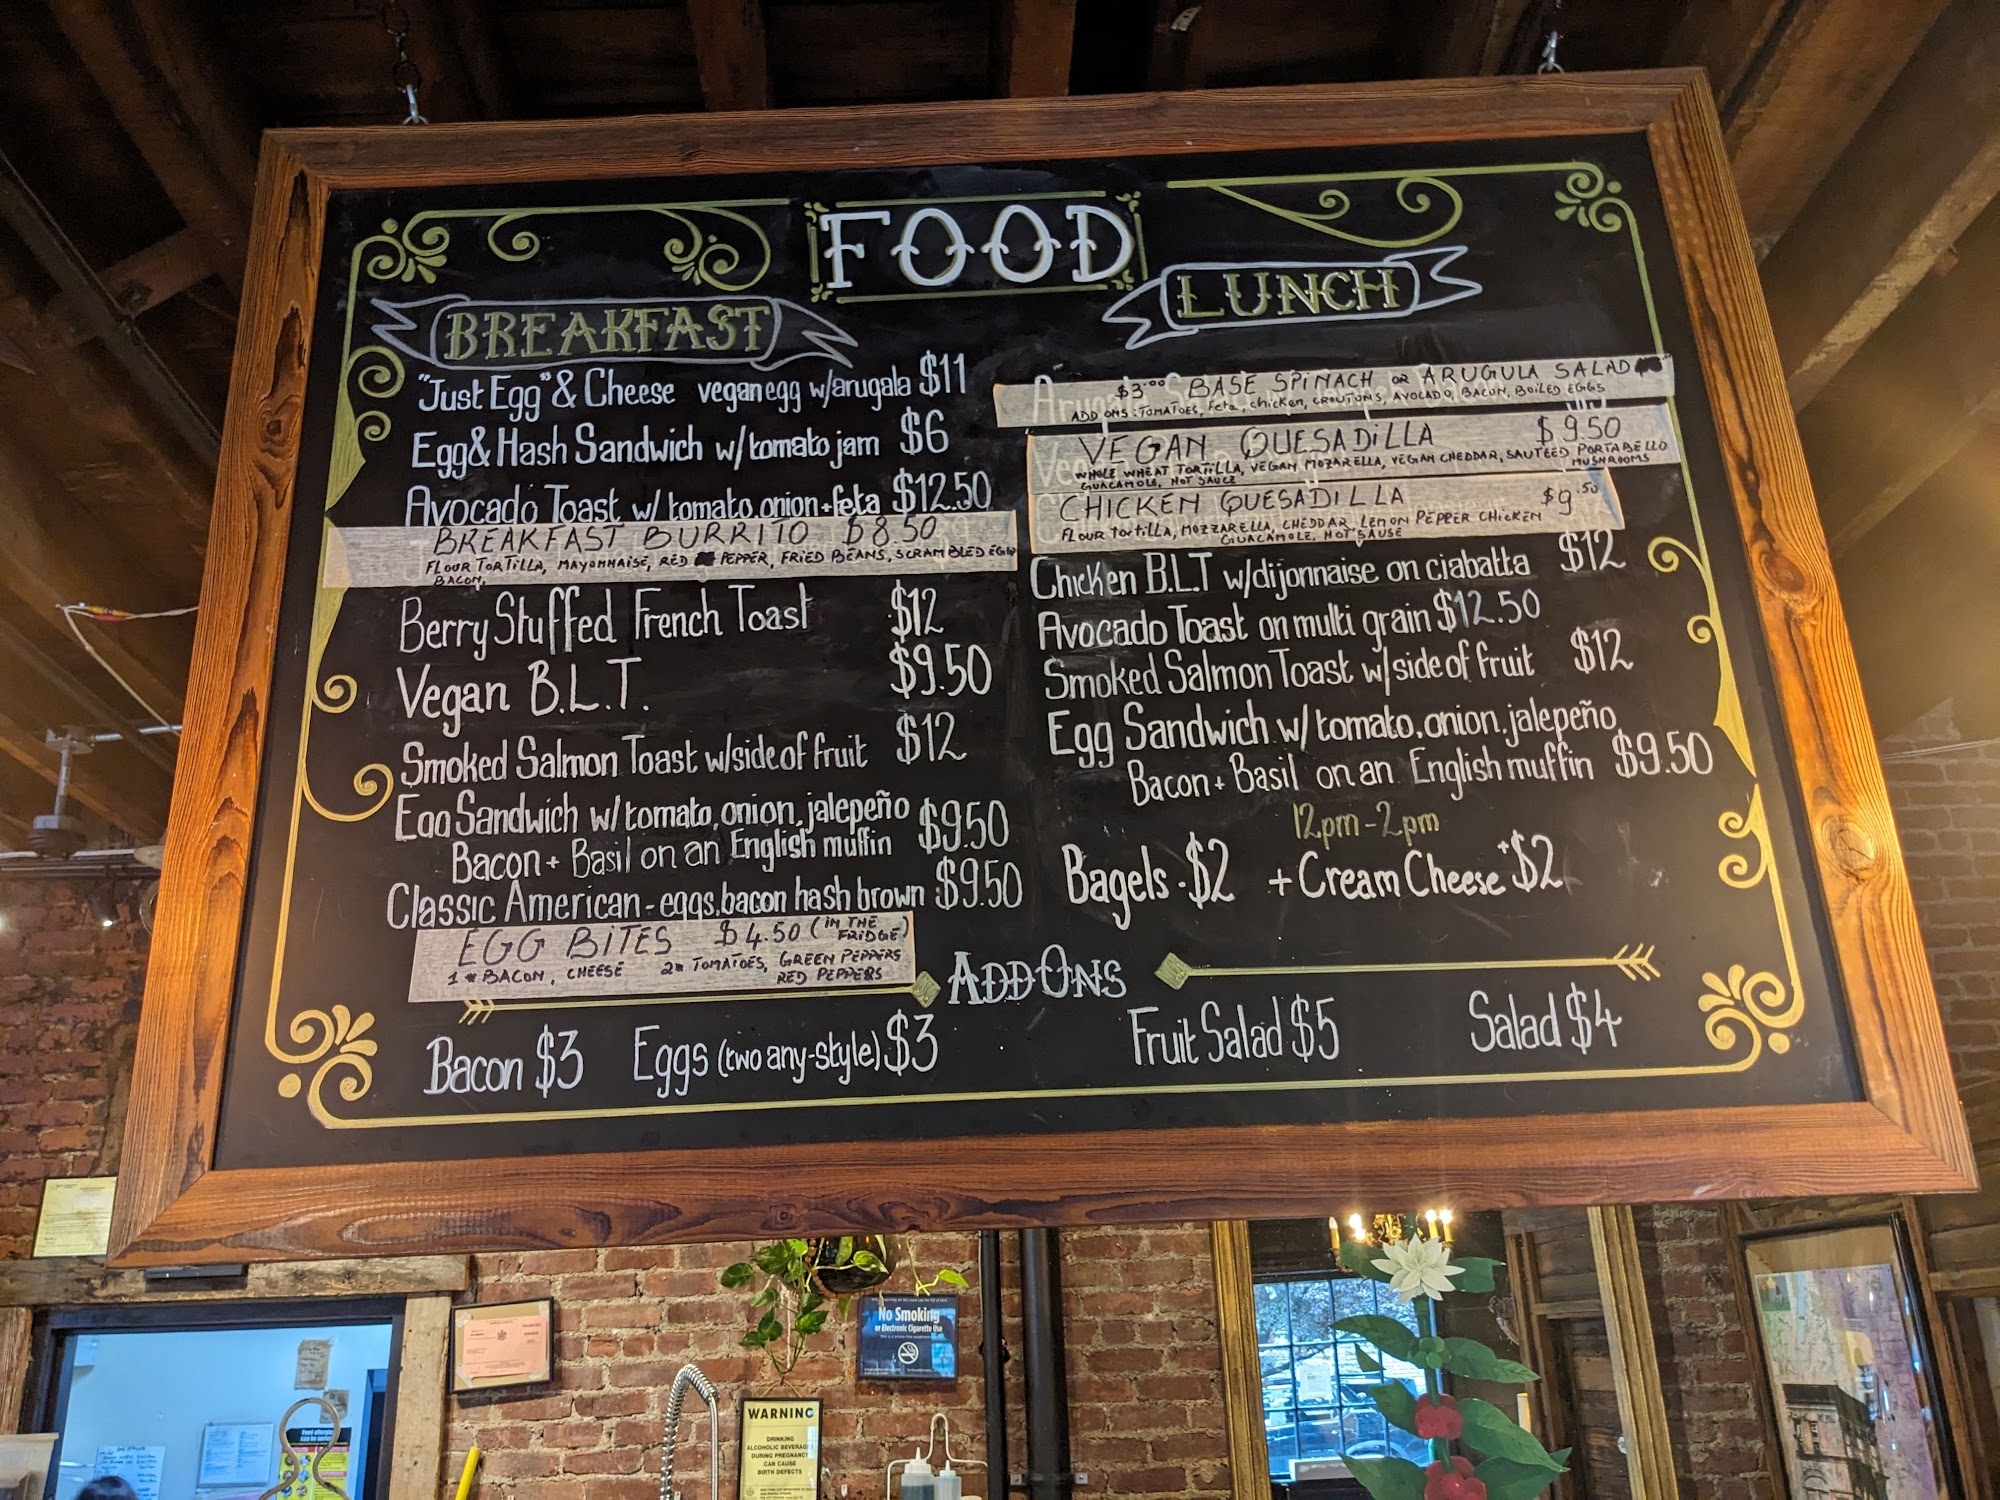 FOOD
BREAKFAST
"Just Egg" & Cheese vegan egg w/arugala $11
Egg & Hash Sandwich w/ tomato jam $6
Avocado Toast w/ tomato, onion + feta $12.50
BREAKFAST BURRITO $8.50
FLOUR TORTILLA, MAYONNAISE, RED PEPPER, FRIED BEANS, SCRAMBLED EGG
BACON,
Berry Stuffed French Toast $12
Vegan B.L.T. $9.50
Smoked Salmon Toast w/side of fruit $12
Egg Sandwich w/ tomato, onion, jalepeño
Bacon + Basil on an English muffin $9.50
Classic American - eggs, bacon hash brown $9.50
EGG BITES $4.50 (IN THE
FRIDGE)
1# BACON, CHEESE 2# TOMATOES, GREEN PEPPERS
RED PEPPERS
LUNCH
$3.00 BASE SPINACH OR ARUGULA SALAD
ADD ONS: TOMATOES, feta, chicken, CROUTONS, AVOCADO, BACON, BOILED EGGS
VEGAN QUESADILLA $9.50
WHOLE WHEAT TORTILLA, VEGAN MOZARELLA, VEGAN CHEDDAR, SAUTEED PORTABELLO
MUSHROOMS
GUACAMOLE, HOT SAUCE
CHICKEN QUESADILLA $9.50
FLOUR TORTILLA, MOZZARELLA, CHEDDAR, LEMON PEPPER CHICKEN
GUACAMOLE, HOT SAUSE
Chicken B.L.T w/dijonnaise on ciabatta $12
Avocado Toast on multi grain $12.50
Smoked Salmon Toast w/side of fruit $12
Egg Sandwich w/ tomato, onion, jalepeño
Bacon + Basil on an English muffin $9.50
12pm - 2pm
Bagels - $2 + Cream Cheese +$2
ADD ONS
Bacon $3 Eggs (two any-style) $3 Fruit Salad $5 Salad $4
No Smoking
or Electronic Cigarette Use
WARNING
DRINKING
ALCOHOLIC BEVERAGES
DURING PREGNANCY
CAN CAUSE
BIRTH DEFECTS